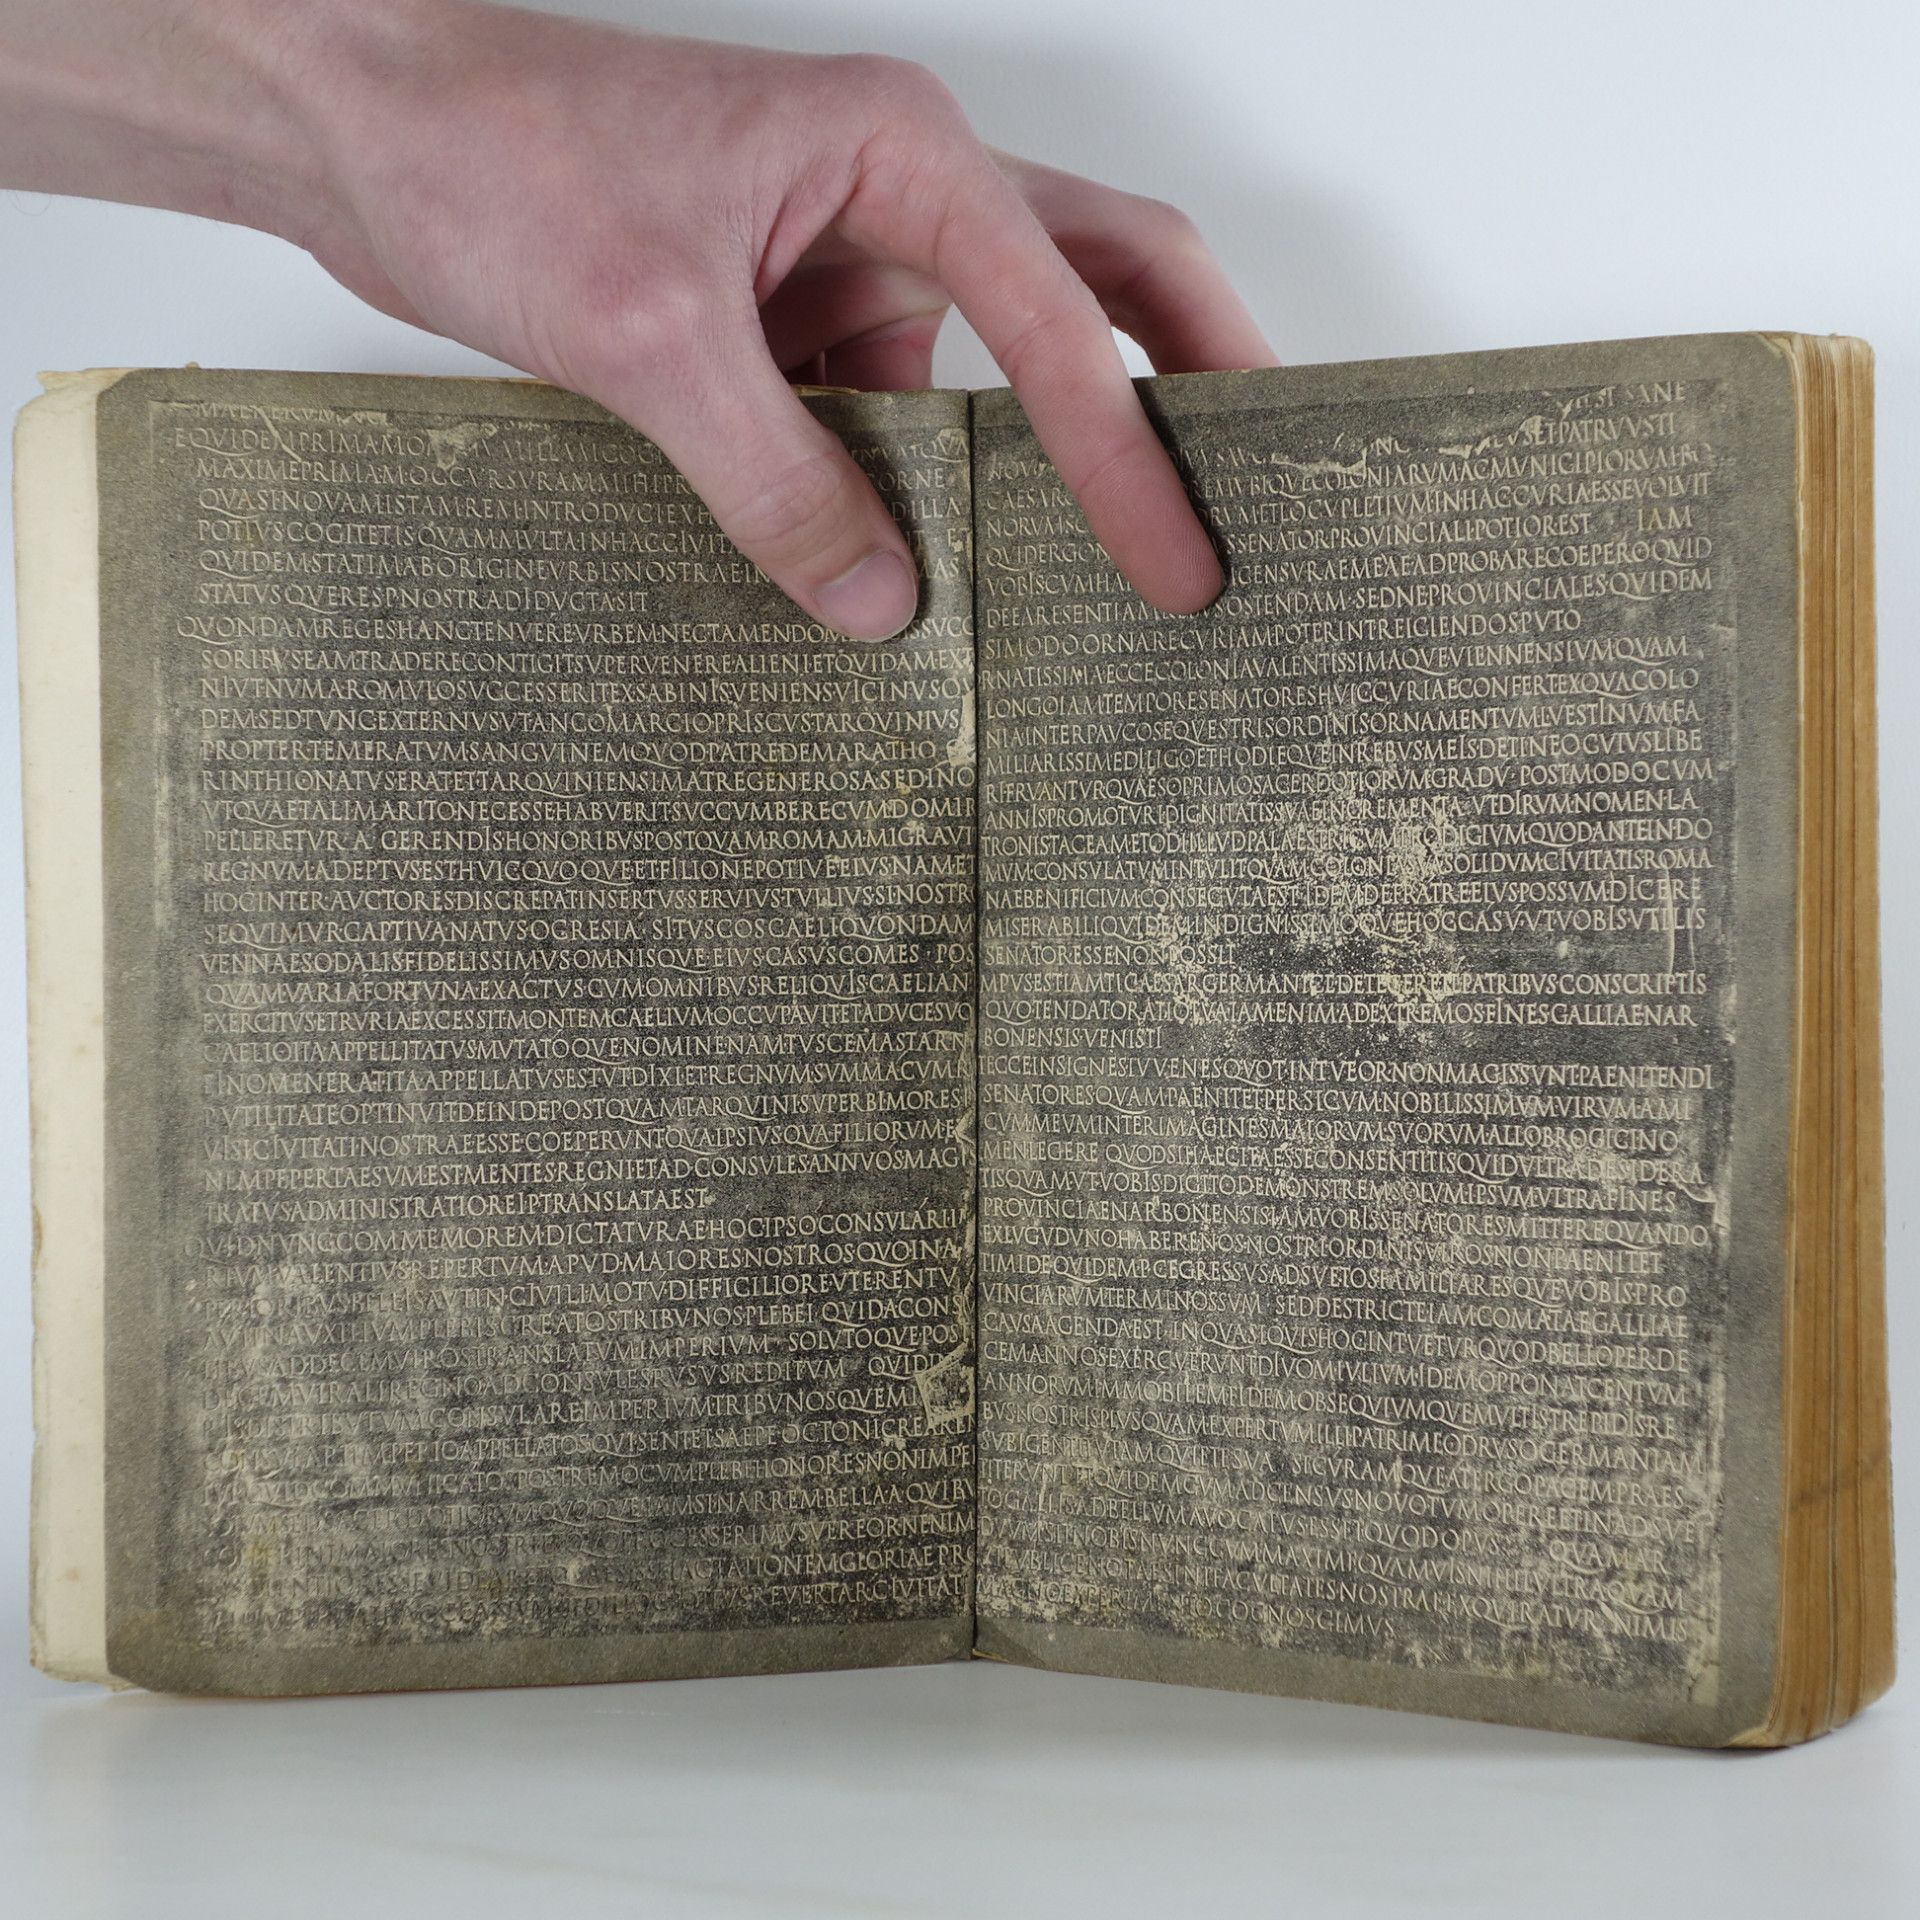 EQVIDEMPRIMAM
MAXIMEPRIMAMOCCVRSVRAMMIHIPR
QVASINOVAMISTAMREMINTRODVCIEXH
POTIVSCOGITETISQVAMMVLTAINHACCIVITA
QVIDEMSTATIMABORIGINEVRBISNOSTRAEIN
STATVSQVERESPNOSTRADIDVCTASIT
QVONDAMREGESHANCTENVEREVRBEMNECTAMENDOM SSVCC
SORIBVSEAMTRADERECONTIGITSVPERVENEREALIENIETQVIDAMEXT
NIVTNVMAROMVLOSVCCESSERITEXSABINISVENIENSVICINVSQV
DEMSEDTVNCEXTERNVSVTANCOMARCIOPRISCVSTARQVINIVS
PROPTERTEMERATVMSANGVINEMQVODPATREDEMARATHO
RINTHIONATVSERATETTARQVINIENSIMATREGENEROSASEDINO
VTQVAETALIMARITONECESSEHABVERITSVCCVMBERECVMDOMIR
PELLERETVR·A GERENDISHONORIBVSPOSTQVAMROMAMMIGRAVI
REGNVMADEPTVSESTHVICQVOQVEETFILIONEPOTIVEEIVSNAMET
HOCINTER·AVCTORESDISCREPATINSERTVSSERVIVSTVLLIVSSINOSTRO
SEQVIMVR·CAPTIVANATVSOCRESIA· SITVSCOSCAELIQVONDAM
VENNAESODALISFIDELISSIMVSOMNISQVE·EIVSCASVSCOMES·POS
QVAMVARIAFORTVNAEXACTVSCVMOMNIBVSRELIQVISCAELIAN
EXERCITVSETRVRIAEXCESSITMONTEMCAELIVMOCCVPAVITETADVCESVO
CAELIOITA·APPELLITATVSMVTATOQVENOMINENAMTVSCEMASTARN
EINOMENERATITA·APPELLATVSESTVTDIXIETREGNVMSVMMACVMR
PVTILITATEOPTINVITDEINDEPOSTQVAMTARQVINISVPERBIMORES
VISICIVITATINOSTRAEESSECOEPERVNTQVAIPSIVSQVAFILIORVME
NEMPEPERTAESVMESTMENTESREGNIETADCONSVLESANNVOSMAGI
TRATVSADMINISTRATIOREIPTRANSLATAEST
QVIDNVNCCOMMEMOREMDICTATVRAEHOCIPSOCONSVLARII
RIVMVALENTIVSREPERTVMAPVDMAIORESNOSTROSQVOINA
PERIORIBVSBELLISAVTINCIVILIMOTVDIFFICILIOREVTERENTV
AVTINAVXILIVMPLEBISCREATOSTRIBVNOSPLEBEI QVIDACONS
ADDECEMVIROSTRANSLATVMIMPERIVM SOLVTOQVEPOS
DECEMVIRALIREGNOADCONSVLESRVSVSREDITVM QVIDI
DISTRIBVTVMCONSVLAREIMPERIVMTRIBVNOSQVEMI
IMPERIOAPPELLATOSQVISENIETSAEPEOCTONICREAREN
QVIDCOMMVNICATOSPOSTREMOCVMPLEBEHONORESNONIMPE
SACERDOTIORVMQVOQVEIAMSINARREMBELLAAQVIBV
COEPERINTMAIORESNOSTRIETQVOPROCESSERIMVSVEREORNENIM
IACTATIONEMGLORIAEPRO
REVERTARCIVITAT
SANE
PATRVVSTI
CAESAR REMVBIQVECOLONIARVMACMVNICIPIORVM
ORVMETLOCVPLETIVMINHACCVRIAESSEVOLVIT
SSENATORPROVINCIALIPOTIOREST IAM
VOBISCVMHA ICENSVRAEMEAEADPROBARECOEPEROQVID
OSTENDAM·SEDNEPROVINCIALESQVIDEM
SIMODOORNARECVRIAMPOTERINTREICIENDOSPVTO
RNATISSIMAECCECOLONIAVALENTISSIMAQVEVIENNENSIVMQVAM
LONGOIAMTEMPORESENATORESHVICCVRIAECONFERTEXQVACOLO
NIAINTERPAVCOSEQVESTRISORDINISORNAMENTVMLVESTINVMFA
MILIARISSIMEDILIGOETHODIEQVEINREBVSMEISDETINEOCVIVSLIBE
RIFRVANTVRQVAESOPRIMOSACERDOTIORVMGRADV·POSTMODOCVM
ANNISPROMOTVRIDIGNITATISSVAEINCREMENTA·VTDIRVMNOMENLA
TRONISTACEAMETODIILLVDPALAESTRICVMPRODIGIVMQVODANTEINDO
MVMCONSVLATVMINTVLITQVAMCOLONIASVASOLIDVMCIVITATISROMA
NAEBENIFICIVMCONSECVTAEST·IDEMDEFRATREEIVSPOSSVMDICERE
MISERABILIQVIDEMINDIGNISSIMOQVEHOCCASV·VTVOBISVTILIS
SENATORESSENONPOSSIT
MPVSESTIAMTICAESARGERMANICEDETEGERETEPATRIBVSCONSCRIPTIS
QVOTENDATORATIOTVAIAMENIMADEXTREMOSFINESGALLIAENAR
BONENSISVENISTI
TECCEINSIGNESIVVENESQVOTINTVEORNONMAGISSVNTPAENITENDI
SENATORESQVAMPAENITETPERSICVMNOBILISSIMVMVIRVMAMI
CVMMEVMINTERIMAGINESMAIORVMSVORVMALLOBROGICINO
MENLEGERE QVODSIHAECITAESSECONSENTITISQVIDVLTRADESIDERA
TISQVAMVTVOBISDIGITODEMONSTREMSOLVMIPSVMVLTRAFINES
PROVINCIAENARBONENSISIAMVOBISSENATORESMITTEREQVANDO
EXLVGVDVNOHABERENOSNOSTRIORDINISVIROSNONPAENITET
TIMIDEQVIDEMPCEGRESSVSADSVETOSFAMILIARESQVEVOBISPRO
VINCIARVMTERMINOSSVM· SEDDESTRICTEIAMCOMATAEGALLIAE
CAVSAAGENDAEST·INQVASIQVISHOCINTVETVRQVODBELLOPERDE
CEMANNOSEXERCVERVNTDIVOMIVLIVM·IDEMOPPONATCENTVM
ANNORVMIMMOBILEMFIDEMOBSEQVIVMQVEMVLTISTREPIDISRE
BVSNOSTRISPLVSQVAMEXPERTVMILLIPATRIMEODRVSOGERMANIAM
SVBIGENTITVTAMQVIETESVA SECVRAMQVEATERGOPACEMPRAES
TITERVNT·ETQVIDEMCVMADCENSVSNOVOTVMOPEREETINADSVE
TOGALLISADBELLVMAVOCATVSESSETQVODOPVS QVAMAR
DVVMSITNOBISNVNCCVMMAXIMEQVAMVISNIHILVLTRAQVAM
VTPVBLICENOTAESINTFACVLTATESNOSTRAEEXQVIRATVR NIMIS
MAGNOEXPERIMENTOCOGNOSCIMVS